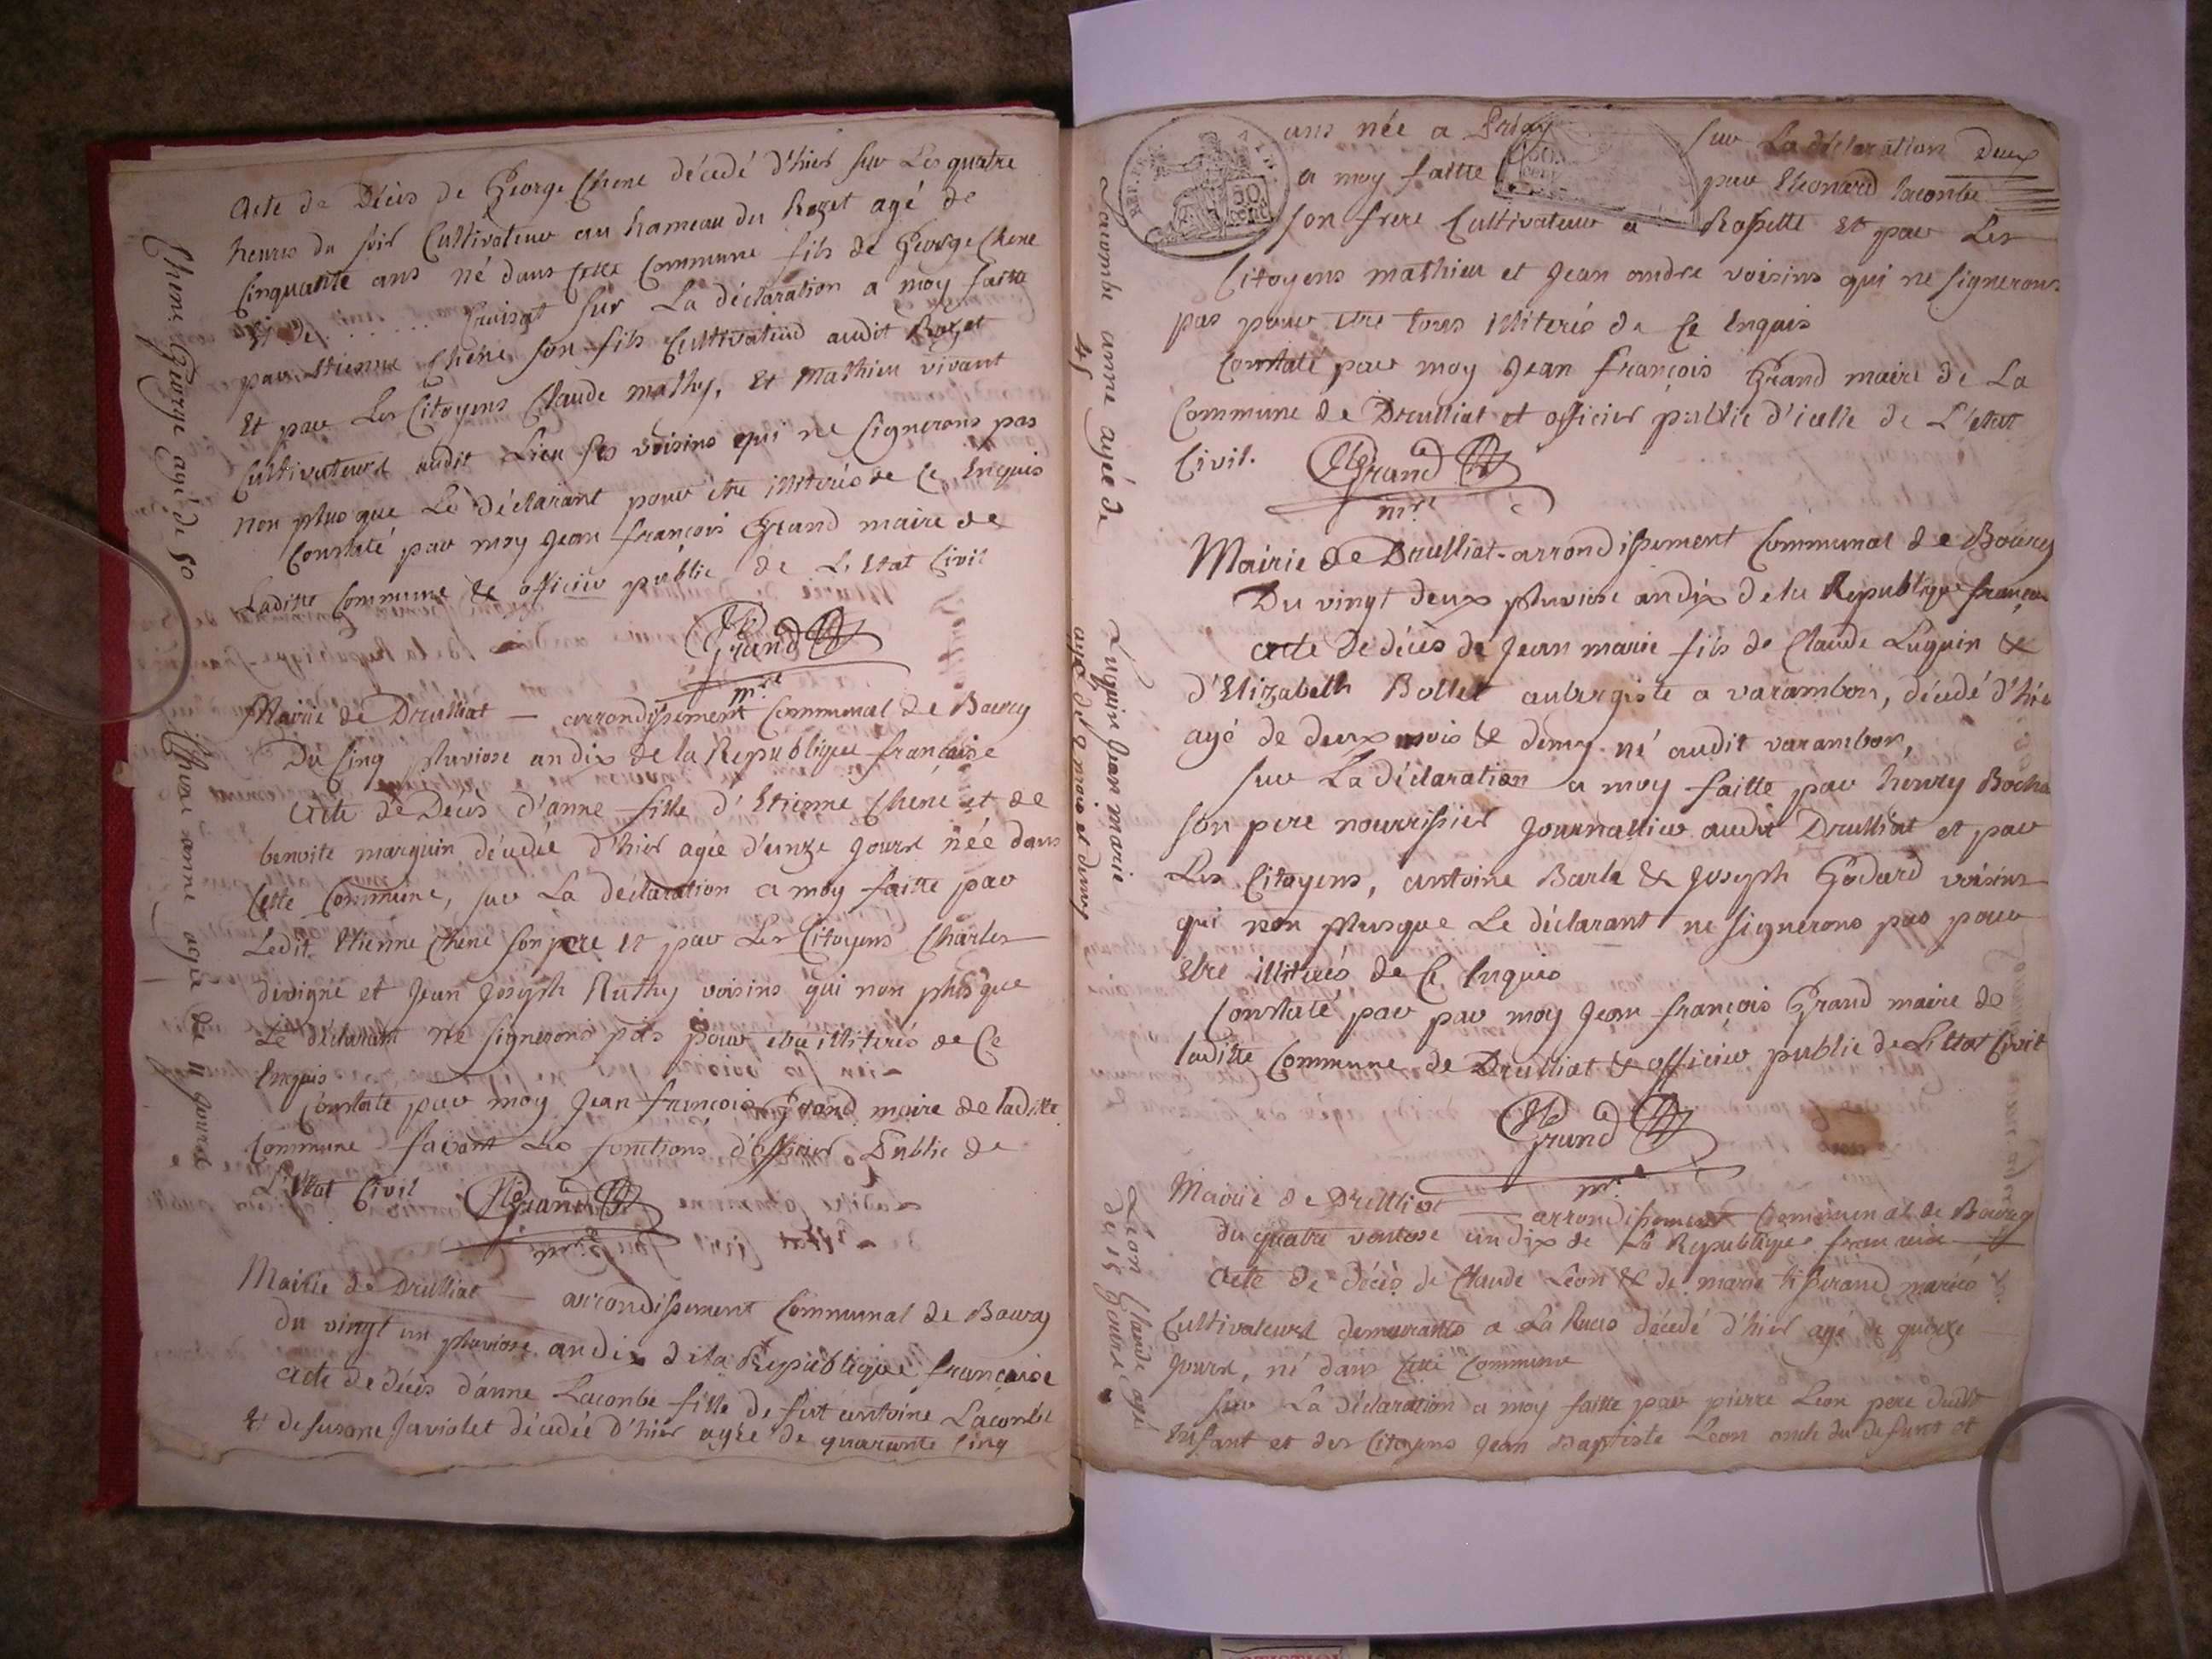 Acte de Décès de George Chene décedé d'hier sur Les quatre
heures du soir Cultivateur au hameau du Rozet agé de
Cinquante ans né dans cette Commune fils de George Chene
Et de ........ sur La déclaration a moy faitte
par Etienne Chene son fils Cultivateur audit Rozet
Et par Les Citoyens Claude mathy, Et Mathieu vivant
Cultivateurs audit Lieu ses voisins qui ne signerons pas
non plus que Le déclarant pour être illiterés de Ce Enquis
Constaté par moy Jean françois Grand maire de
Laditte Commune & officier public de L'Etat Civil
Grand
mre
Chene George agé de 50
Mairie de Druilliat — arrondissement Communal de Bourg
Du Cinq pluviose an dix de la Republique française
Acte de Décès d'anne fille d'Etienne Chene et de
benoite marguin décedée d'hier agée d'unze jours née dans
Cette Commune, sur La déclaration a moy faitte par
Ledit Etienne Chene son pere Et par Les Citoyens Charles
divigne et Jean Joseph Ruthy voisins qui non plus que
Le déclarant ne signerons pas pour etre illiterés de Ce
Enquis
Constaté par moy Jean francois Grand maire de laditte
Commune faisant Les fonctions d'officier Public de
L'Etat Civil Grand
mre
Chene anne agée de 11 jours
Mairie de Druilliat — arrondissement Communal de Bourg
du vingt un pluviose an dix de la Republique française
Acte de décès d'anne Lacombe fille de fut antoine Lacombe
Et de Susane Javiolet décedée d'hier agée de quarante Cinq
Lacombe anne agée de
45
ans née a Priay sur La déclaration Deux
a moy faitte par Léonard lacombe
son frere Cultivateur a Rossette Et par Les
Citoyens mathieu et Jean andre voisins qui ne signerons
pas pour etre tous illiterés de Ce Enquis
Constaté par moy Jean françois Grand maire de La
Commune de Druilliat et officier public d'icelle de L'etat
Civil. Grand
mre
Mairie de Druilliat - arrondissement Communal de Bourg
Du vingt deux pluviose an dix de la Republique françai
acte de décès de Jean marie fils de Claude Luguin &
d'Elizabeth Bollet aubergiste a varambon, décedé d'hie
agé de deux mois & demy né audit varambon,
sur La déclaration a moy faitte par henry Bocha
son pere nourrissier journallier audit Druilliat et par
Les Citoyens, antoine Barla & Joseph Godard voisins
qui non plusque Le déclarant ne signerons pas pour
Etre illiterés de Ce Enquis
Constaté par par moy Jean françois Grand maire de
laditte Commune de Druilliat & officier public de L'Etat Civil
Grand
mre
Luguin Jean marie
agé de 2 mois et demy
Mairie de Druilliat — arrondissement Communal de Bourg
du quatre ventose an dix de La Republique francaise
Acte de décès de Claude Léon & de marie mariés
Cultivateurs demeurants a La Ruas décedé d'hier agé de quinze
jours, né dans Cette Commune
sur La déclaration a moy faitte par pierre Leon pere dudit
Enfant et des Citoyens Jean Baptiste Leon oncle du defunt et
Léon Claude agé
de 15 jours